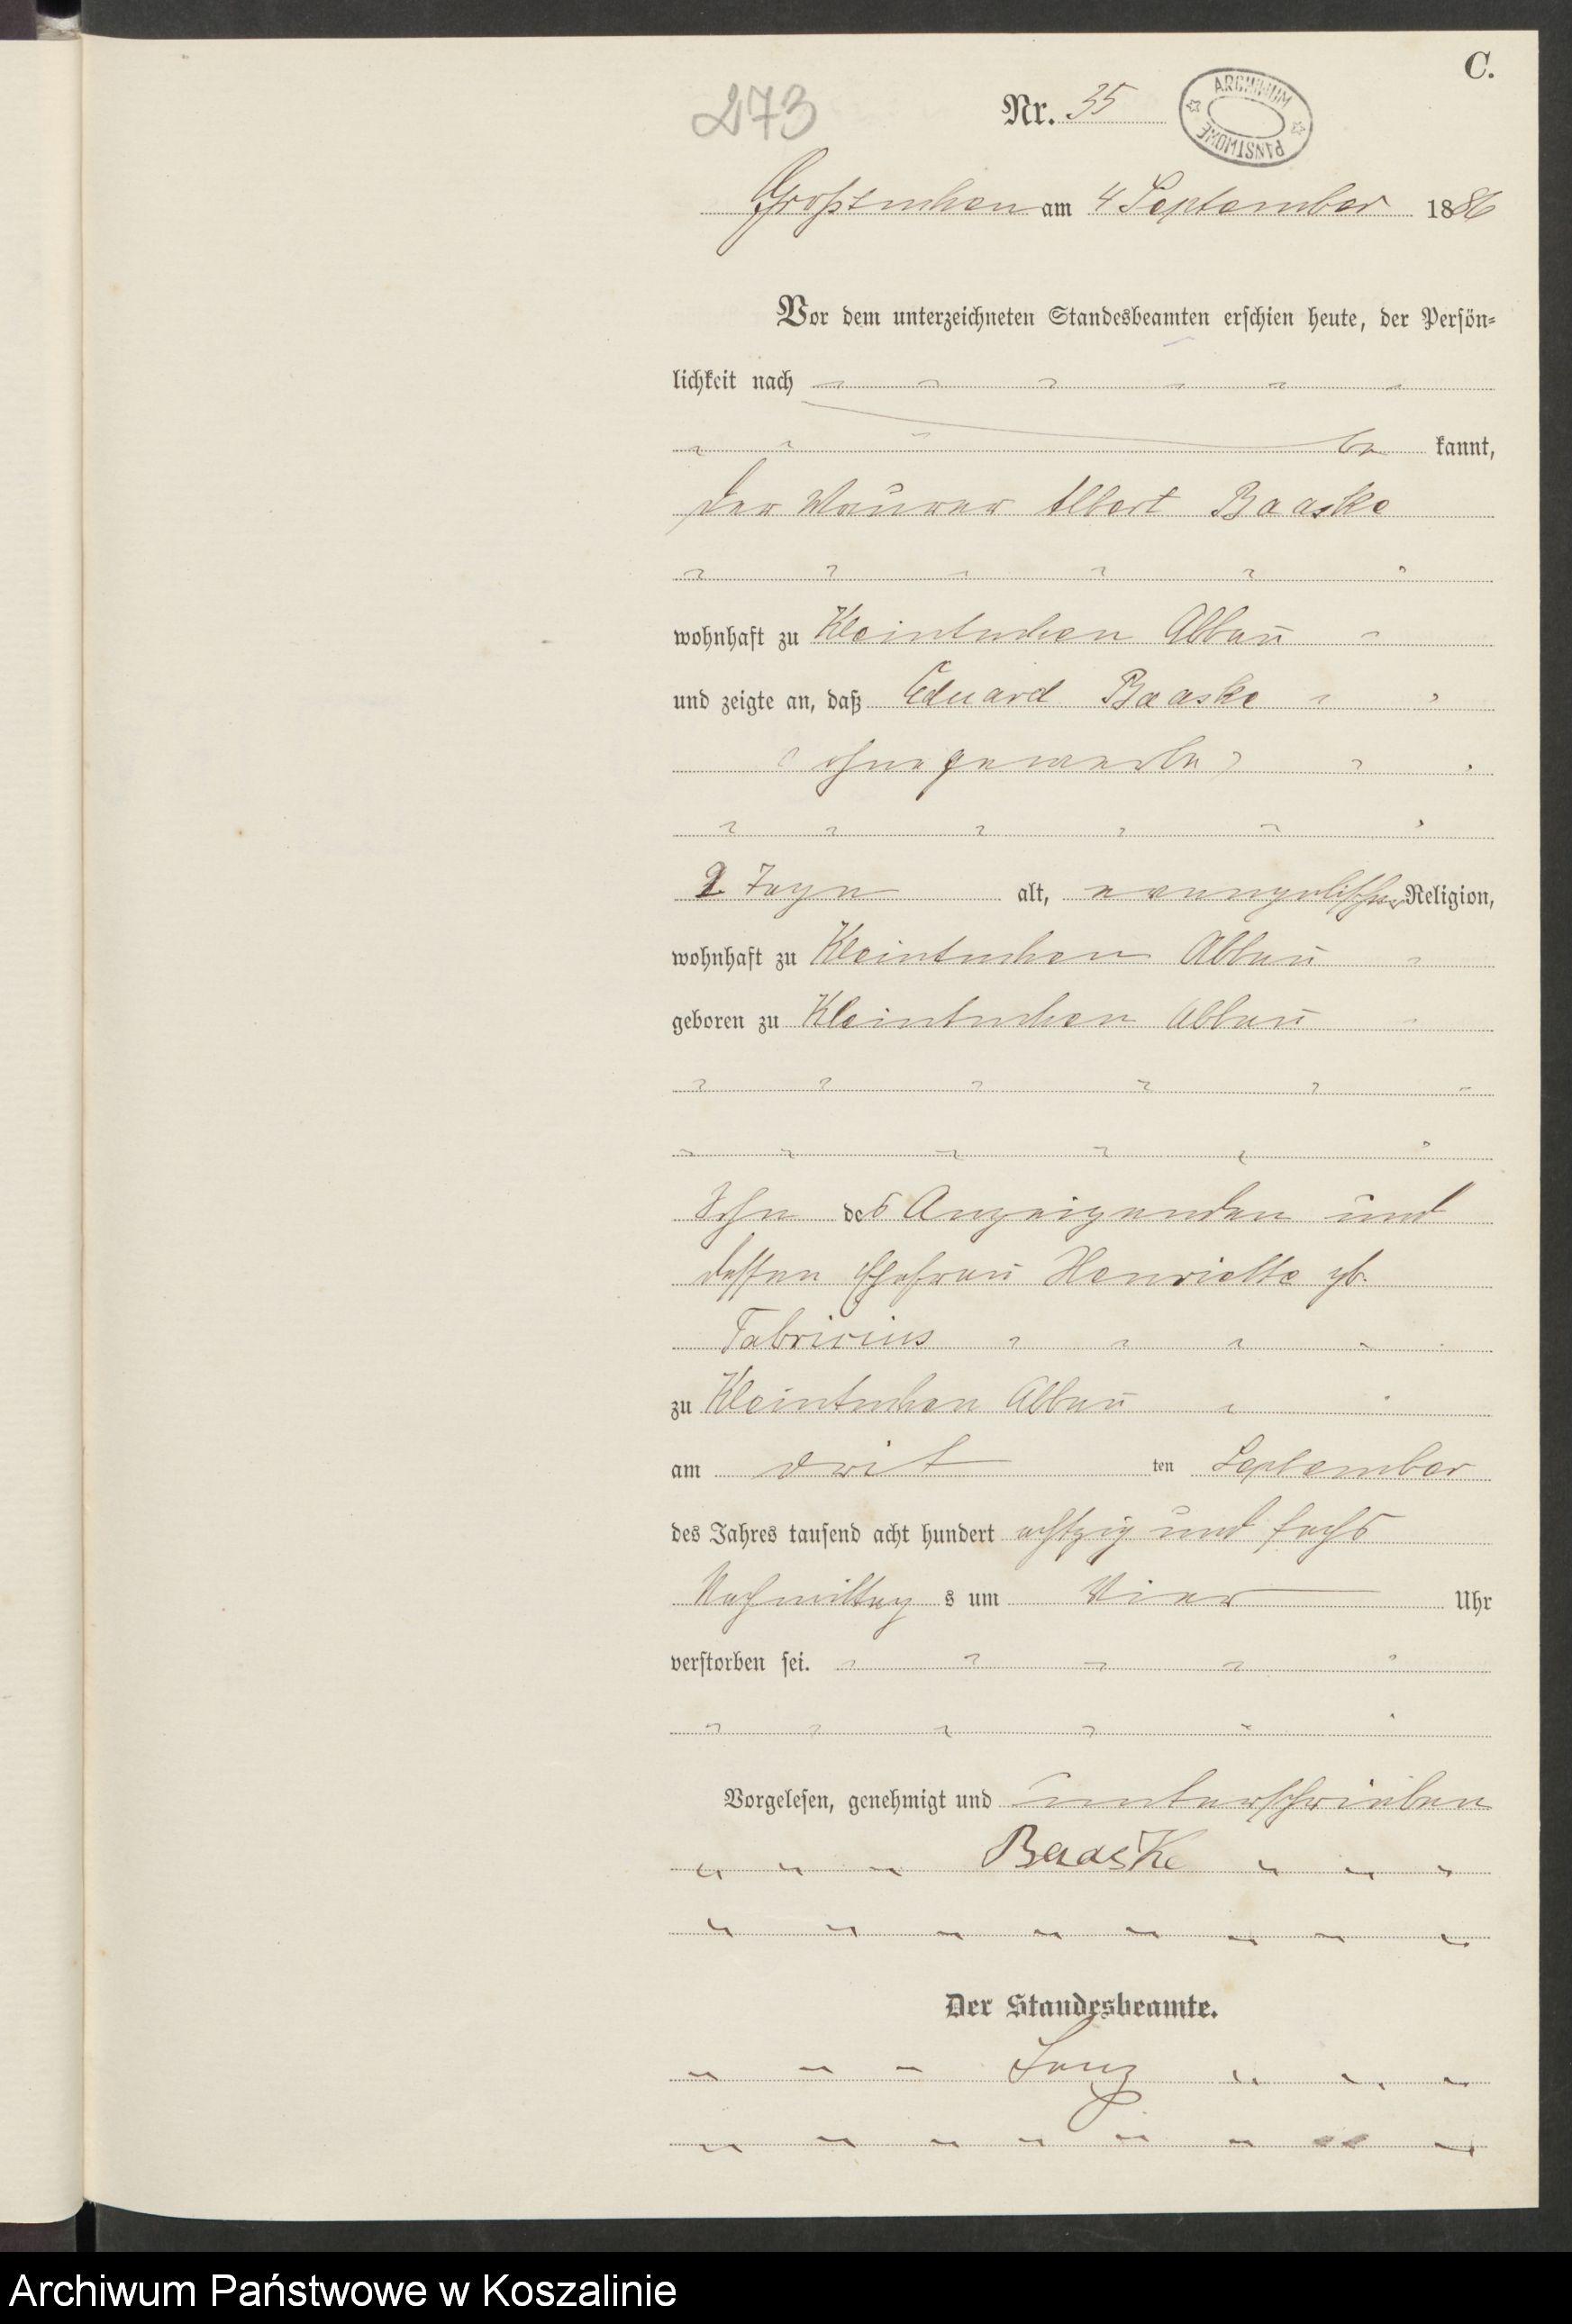 C.
273
Nr. 35
ARCHIWUM PAŃSTWOWE
Großtuchen am 4 September 1886
Vor dem unterzeichneten Standesbeamten erschien heute, der Persön-
lichkeit nach
be kannt,
der Maurer Albert Baaske
wohnhaft zu Kleintuchen Abbau
und zeigte an, daß Eduard Baaske
(ohne gewerbe)
2 Tage alt, evangelischer Religion,
wohnhaft zu Kleintuchen Abbau
geboren zu Kleintuchen Abbau
Sohn des Anzeigenden und
dessen Ehefrau Henriette gb.
Fabricius
zu Kleintuchen Abbau
am drit ten September
des Jahres tausend acht hundert achtzig und sechs
Nachmittag s um Vier Uhr
verstorben sei.
Vorgelesen, genehmigt und unterschrieben
Baaske
Der Standesbeamte.
Archiwum Państwowe w Koszalinie